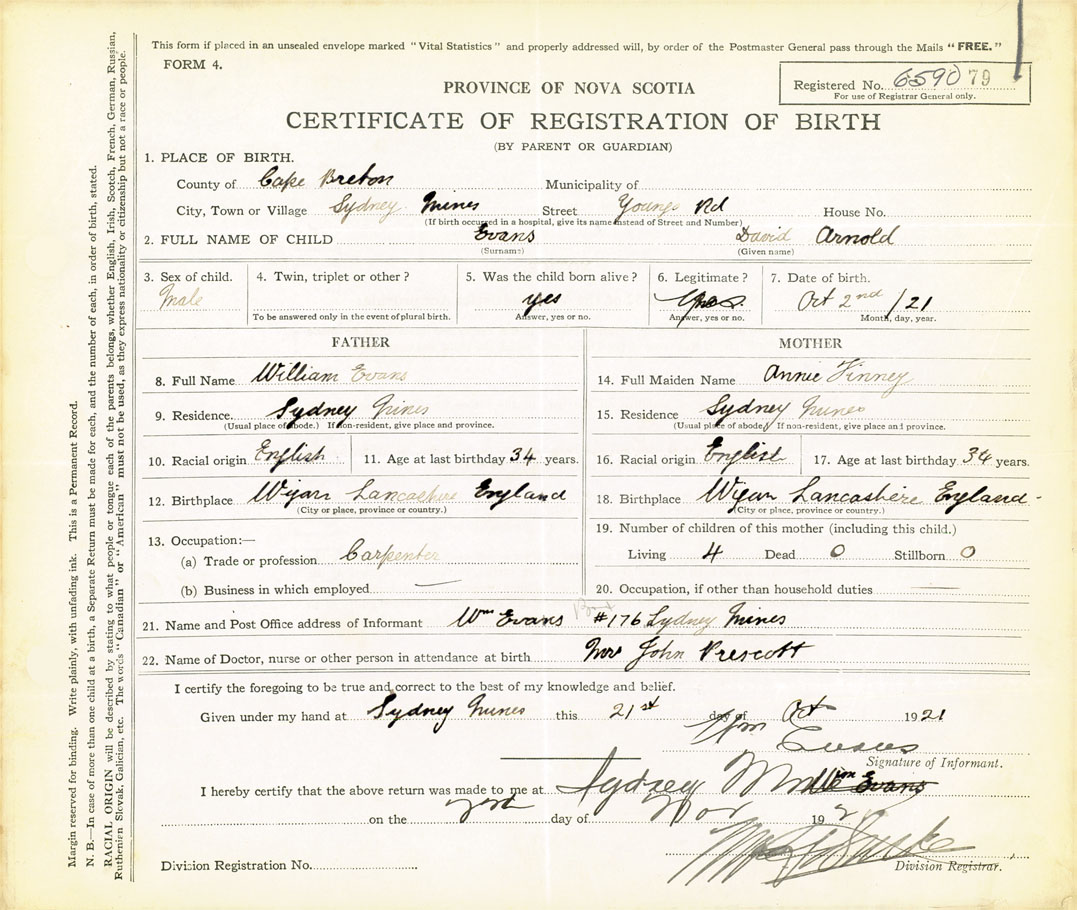 This form if placed in an unsealed envelope marked "Vital Statistics" and properly addressed will, by order of the Postmaster General pass through the Mails "FREE."
FORM 4.
Registered No. 6590 79
For use of Registrar General only.
PROVINCE OF NOVA SCOTIA
CERTIFICATE OF REGISTRATION OF BIRTH
(BY PARENT OR GUARDIAN)
1. PLACE OF BIRTH.
County of Cape Breton Municipality of
City, Town or Village Sydney Mines Street Youngs Rd House No.
(If birth occurred in a hospital, give its name instead of Street and Number)
2. FULL NAME OF CHILD Evans David Arnold
(Surname) (Given name)
3. Sex of child. 4. Twin, triplet or other? 5. Was the child born alive? 6. Legitimate? 7. Date of birth.
Male yes yes Oct 2nd /21
To be answered only in the event of plural birth. Answer, yes or no. Answer, yes or no. Month, day, year.
FATHER MOTHER
8. Full Name William Evans 14. Full Maiden Name Annie Finney
9. Residence. Sydney Mines 15. Residence Sydney Mines
(Usual place of abode.) If non-resident, give place and province. (Usual place of abode.) If non-resident, give place and province.
10. Racial origin English 11. Age at last birthday 34 years. 16. Racial origin English 17. Age at last birthday 34 years.
12. Birthplace Wigan Lancashire England 18. Birthplace Wigan Lancashire England
(City or place, province or country.) (City or place, province or country.)
13. Occupation:— 19. Number of children of this mother (including this child.)
(a) Trade or profession Carpenter Living 4 Dead 0 Stillborn 0
(b) Business in which employed 20. Occupation, if other than household duties
21. Name and Post Office address of Informant Wm Evans Box #176 Sydney Mines
22. Name of Doctor, nurse or other person in attendance at birth Mrs John Prescott
I certify the foregoing to be true and correct to the best of my knowledge and belief.
Given under my hand at Sydney Mines this 21st day of Oct 1921
Wm Evans
Signature of Informant.
I hereby certify that the above return was made to me at Sydney Wm Evans
on the day of Nov 192
Division Registration No. Division Registrar.
Margin reserved for binding. Write plainly, with unfading ink. This is a Permanent Record.
N. B.—In case of more than one child at a birth, a Separate Return must be made for each, and the number of each, in order of birth, stated.
RACIAL ORIGIN will be described by stating to what people or tongue each of the parents belongs, whether English, Irish, Scotch, French, German, Russian,
Ruthenian Slovak, Galician, etc. The words "Canadian" or "American" must not be used, as they express nationality or citizenship but not a race or people.